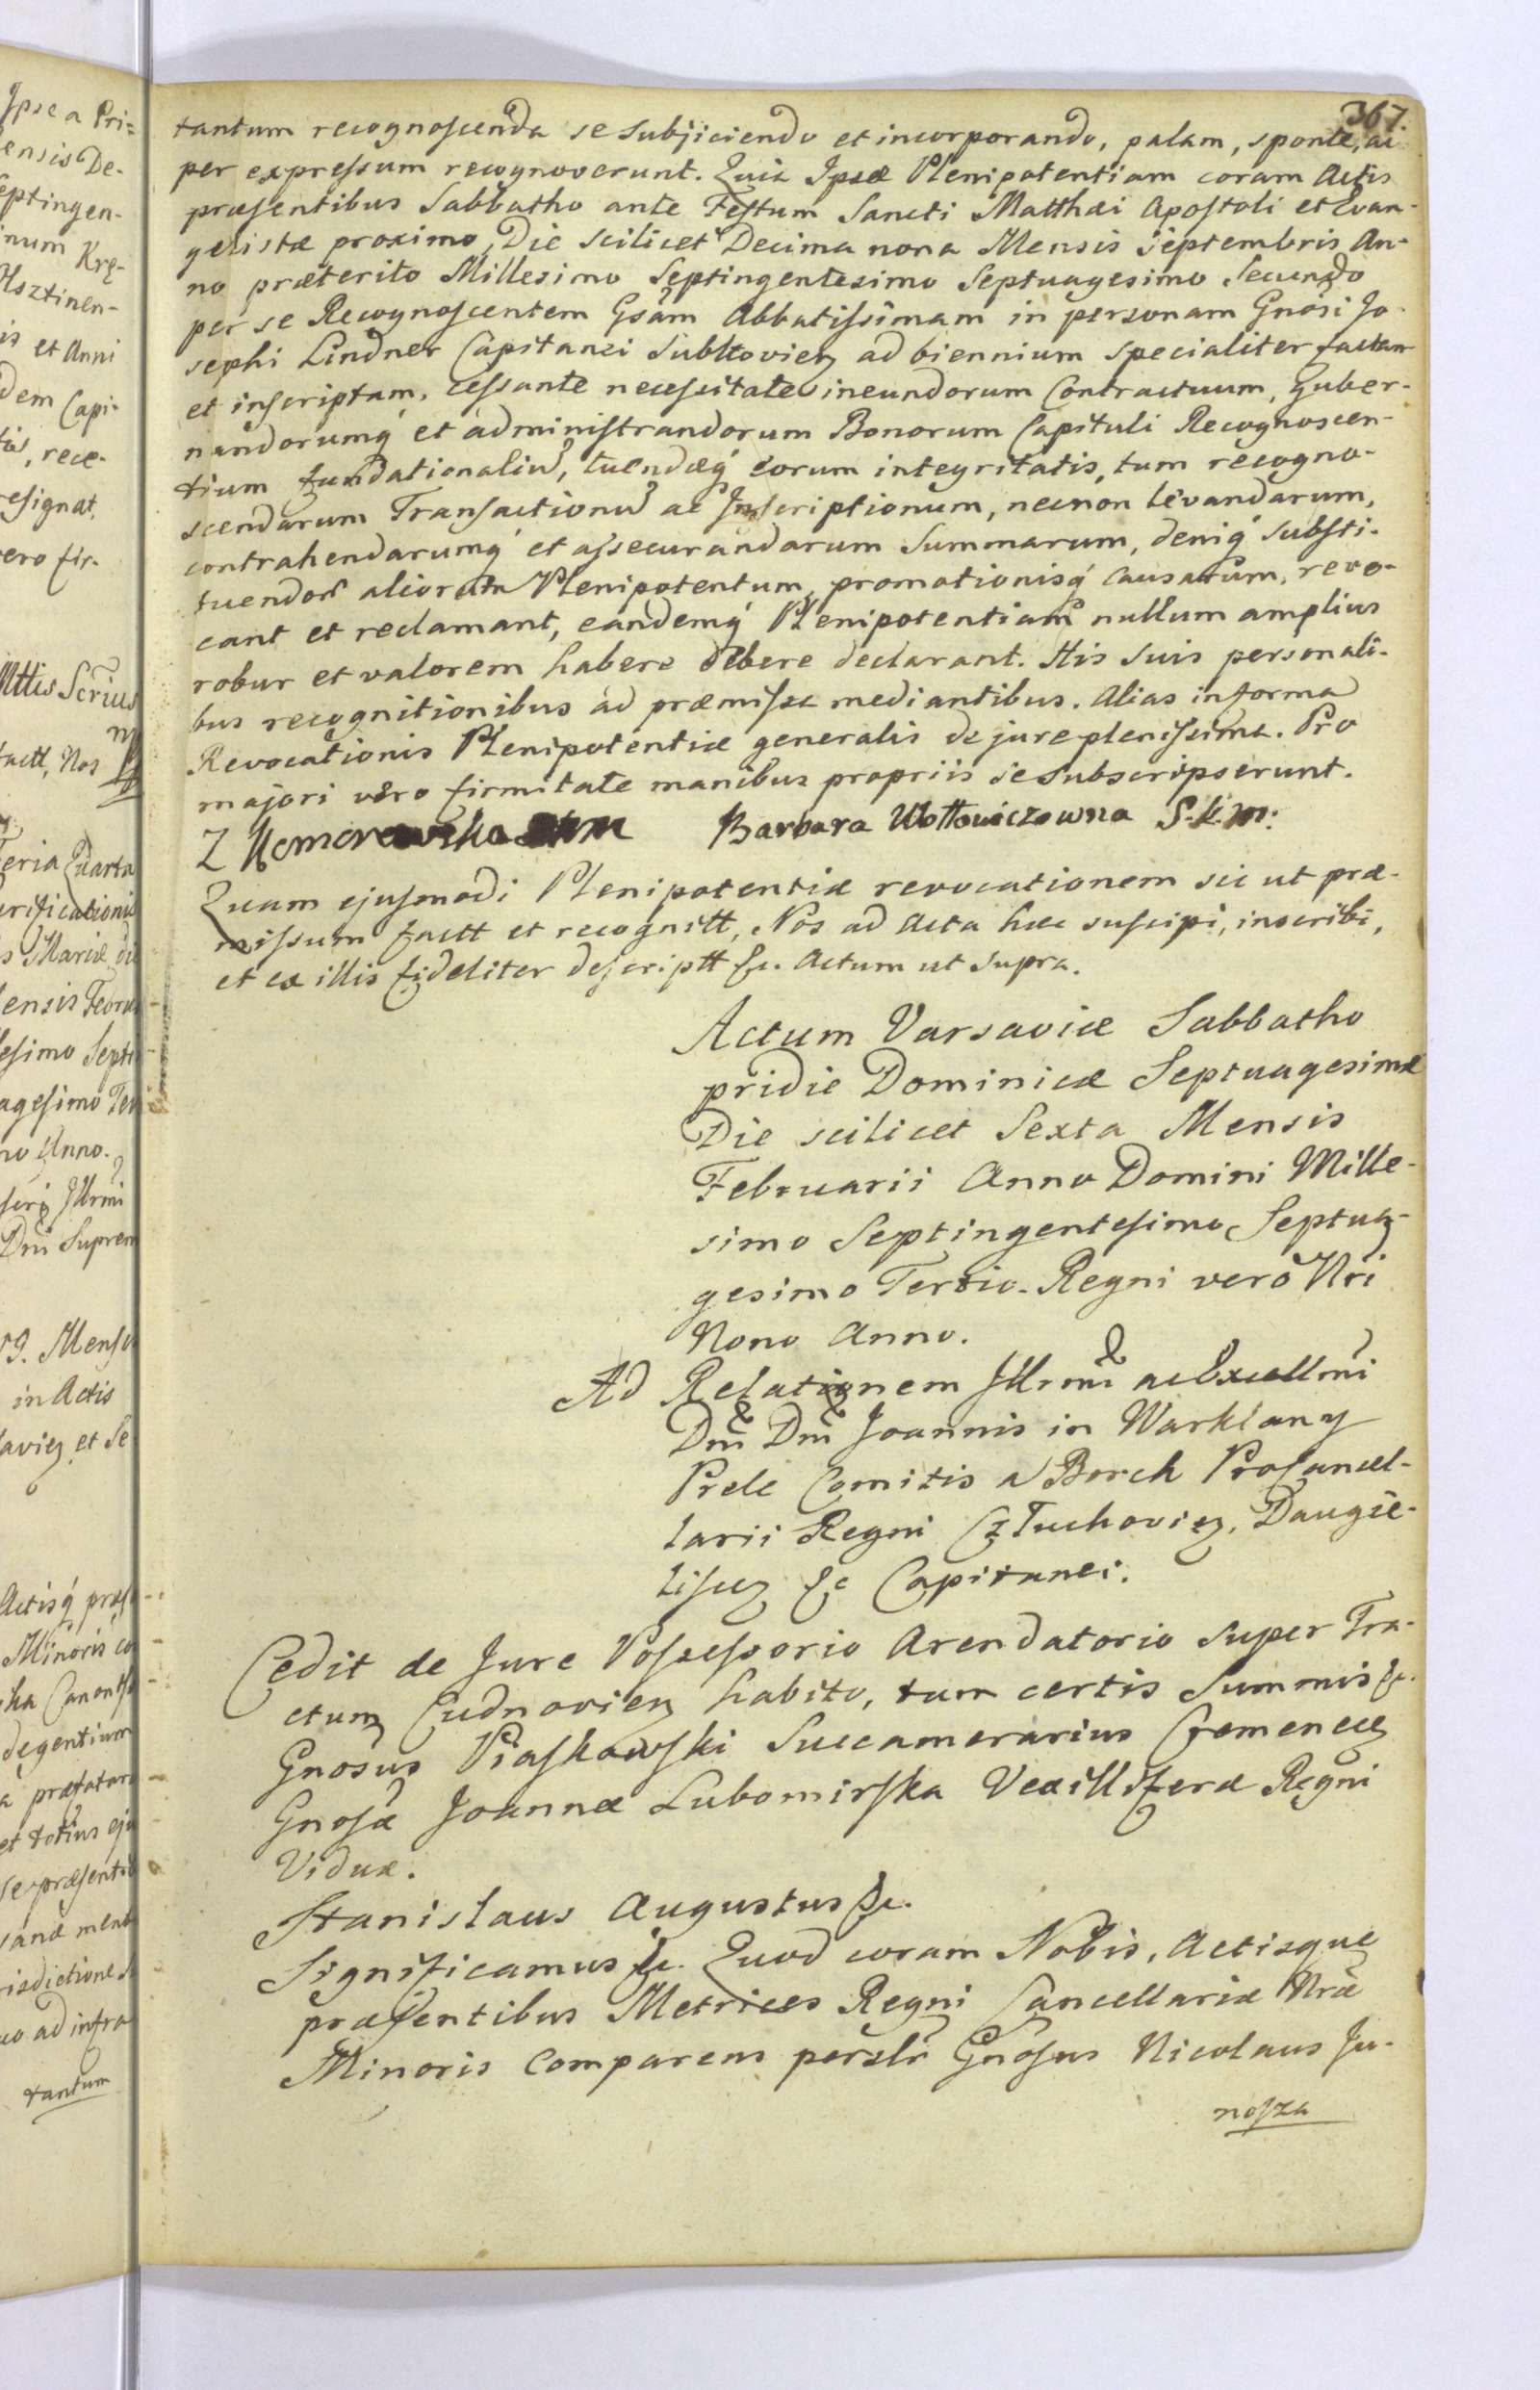 367.
tantum recognoscenda se subjiciendo et incorporando, palam, sponte, ac
per expressum recognoverunt. Quia Ipsæ Plenipotentiam coram Actis
præsentibus Sabbatho ante Festum Sancti Matthæi Apostoli et Evan-
gelistæ proximo, Die scilicet Decima nona Mensis Septembris An-
no præterito Millesimo Septingentesimo Septuagesimo Secundo
per se Recognoscentem Gsam Abbatissimam in personam Gnosi Jo-
sephi Lindner Capitanei ad biennium specialiter factam
et inscriptam, cessante necessitate ineundorum Contractuum, guber-
nandorumq et administrandorum Bonorum Capituli Recognoscen-
tium fundationaliu, tuendæq eorum integritatis, tum recogno-
scendarum Transactionu ac Inscriptionum, necnon levandarum,
contrahendarumq et assecurandarum Summarum, deniq substi-
tuendor aliorum Plenipotentum, promotionisq Causarum, revo-
cant et reclamant, eandemq Plenipotentiam nullum amplius
robur et valorem habere debere declarant. His suis personali-
bus recognitionibus ad præmissa mediantibus. Alias in forma
Revocationis Plenipotentiæ generalis de jure plenissima. Pro
majori vero firmitate manibus propriis se subscripserunt.
Z Komorowska Barbara Wottowiczowna S. k. m:
Quam ejusmodi Plenipotentiæ revocationem sic ut præ-
missum factt et recognitt, Nos ad Acta hæc suscipi, inscribi,
et ex illis fideliter descriptt &c. Actum ut supra.
Actum Varsaviæ Sabbatho
pridie Dominicæ Septuagesimæ
Die scilicet Sexta Mensis
Februarii Anno Domini Mille-
simo Septingentesimo Septua-
gesimo Tertio. Regni vero Nri
Nono Anno.
Ad Relationem Illrmi ac Excellmi
Dni Dni Joannis in Warklany
Prele Comitis a Borch ProCancel-
larii Regni Człuchovien, Daugie-
liscen &c Capitanei.
Cedit de Jure Possessorio Arendatorio super Tra-
ctum Cudnovien habito, tum certis Summis &c.
Gnosus Piaskowski Succamerarius Cremenecen
Gnosæ Joannæ Lubomirska Vexilliferæ Regni
Viduæ.
Stanislaus Augustus &c.
Significamus &c. Quod coram Nobis, Actisque
præsentibus Metrices Regni Cancellariæ Nræ
Minoris Comparens perslr Gnosus Nicolaus Ju-
nosza